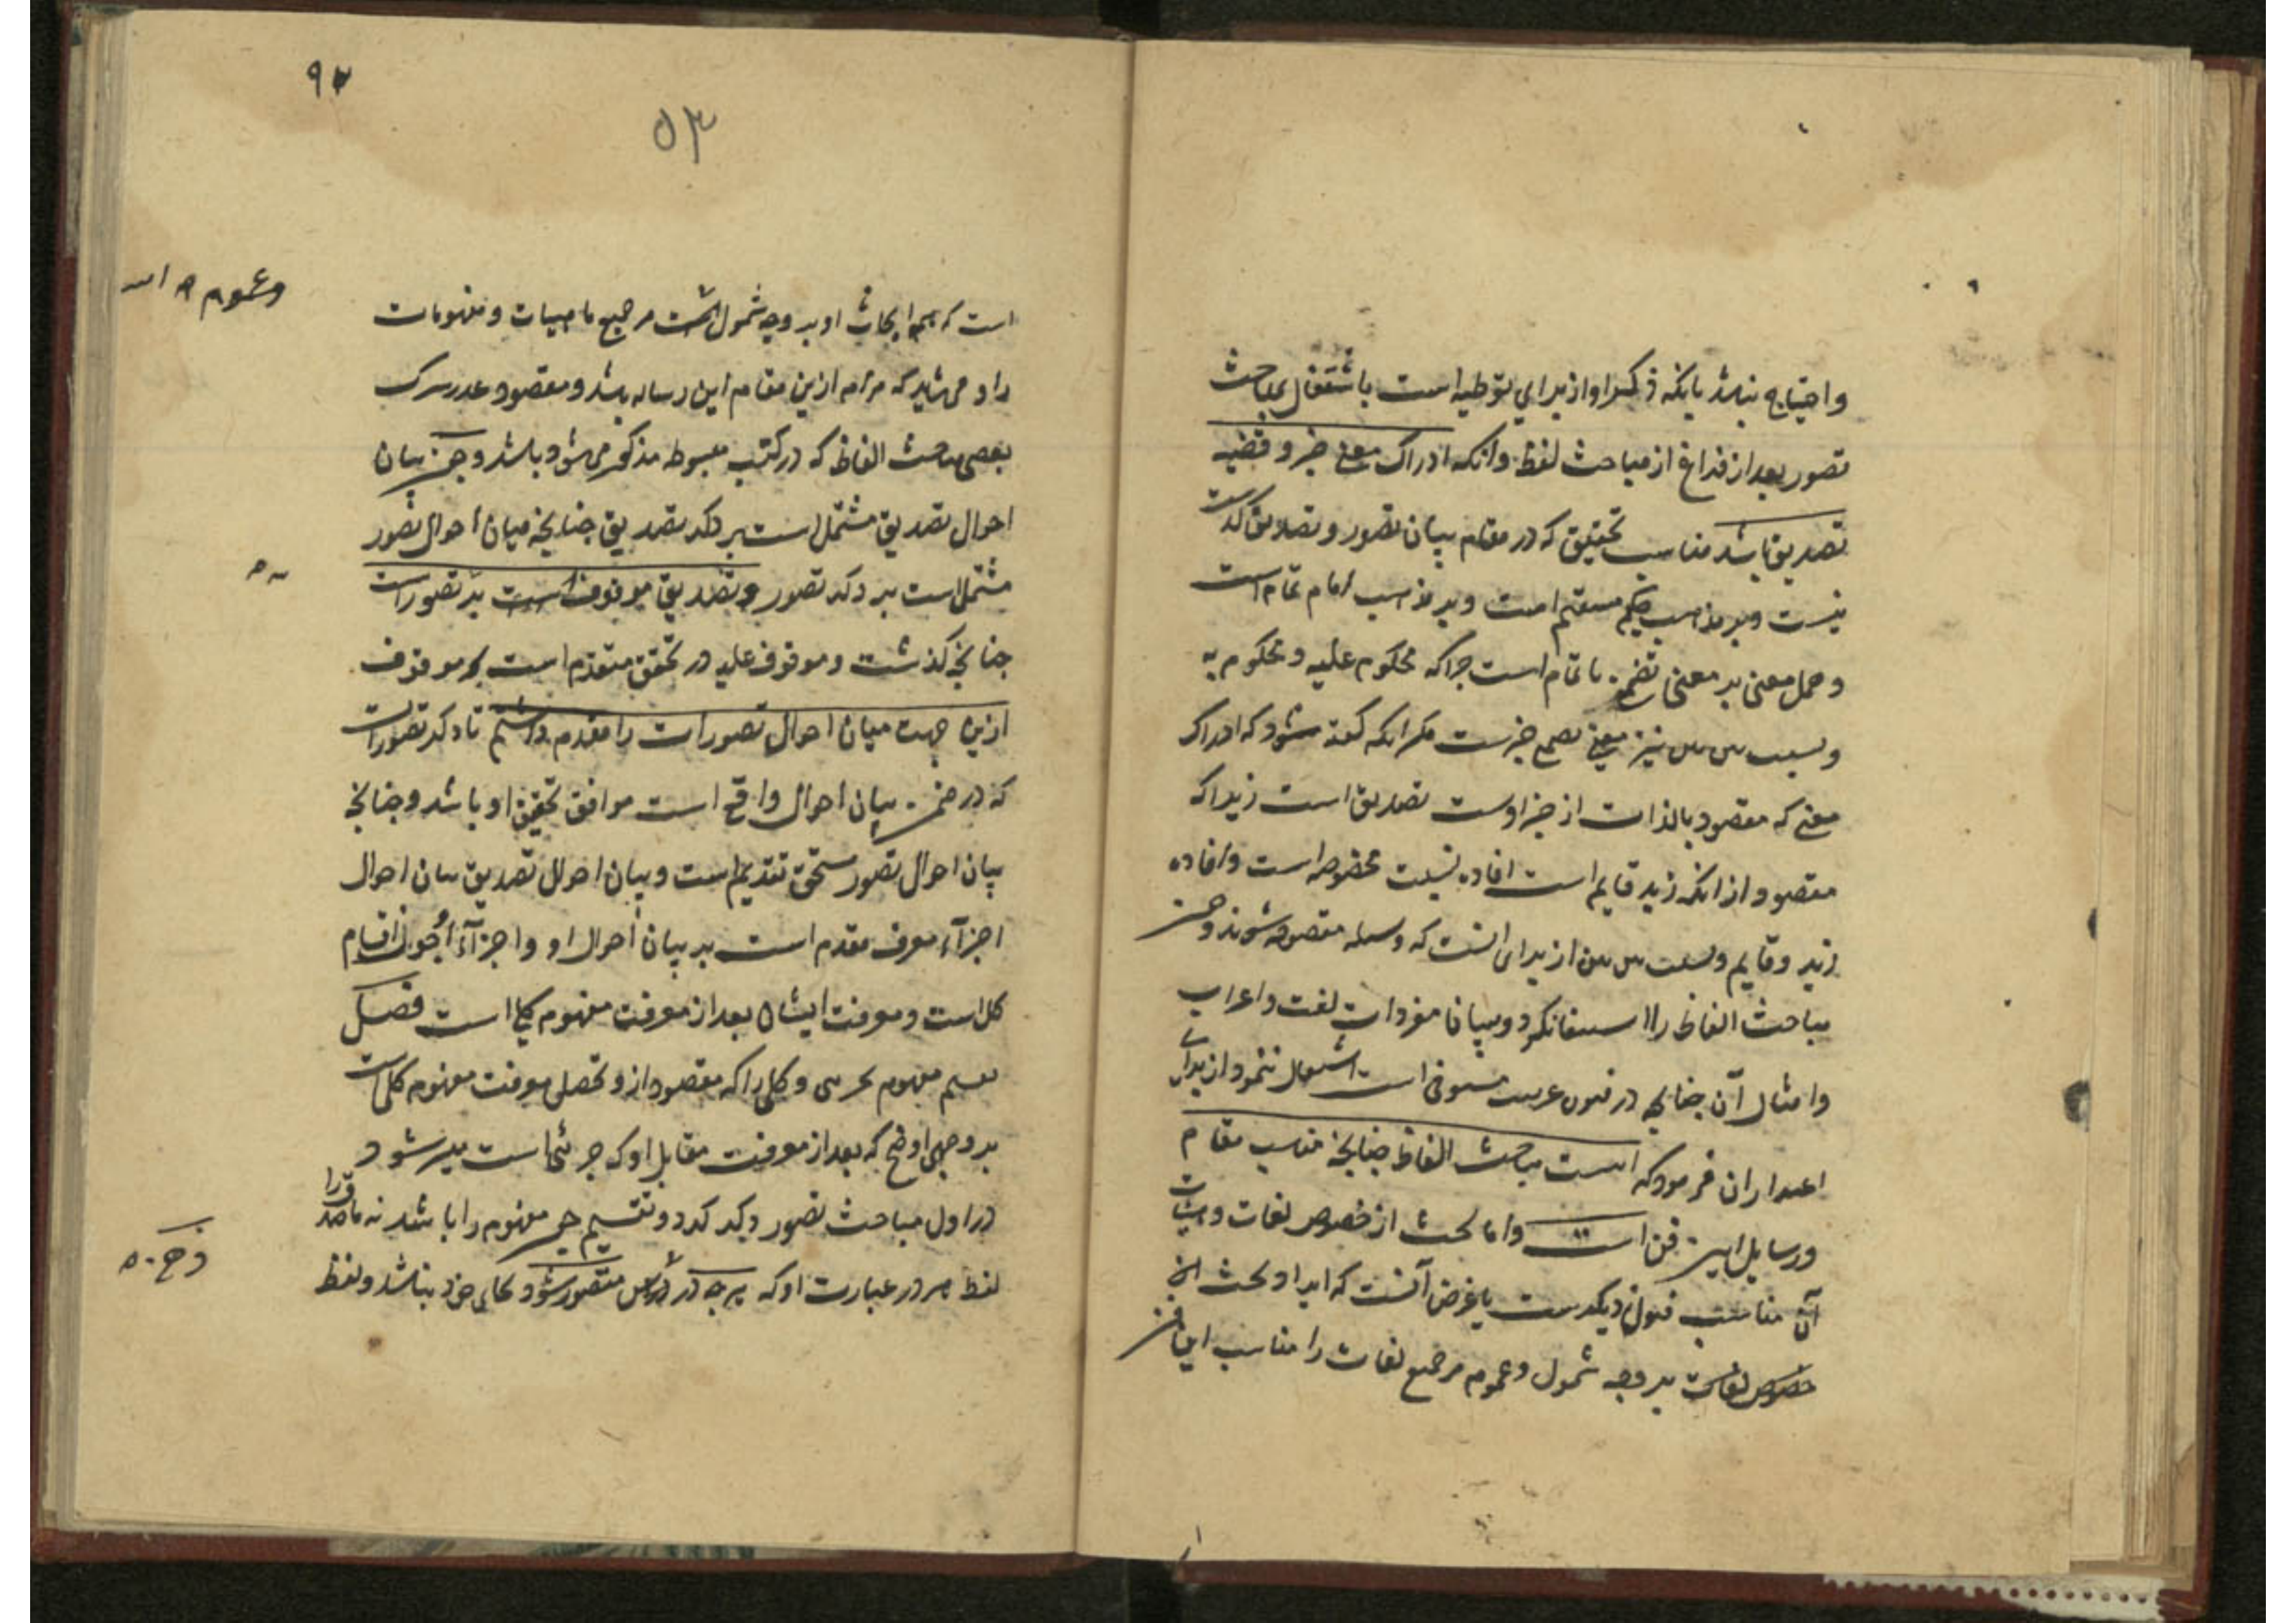 و احتیاج نباشد یا آنکه ذکر او از برای توطیه است باشتغال بمباحث
تصور بعد از فراغ از مباحث لفظ و آنکه ادراک معنی خبر و قضیه
تصدیق باشد مناسب تحقیق که در مقام بیان تصور و تصدیق گذشت
نیست و بر مذهب حکیم مستقیم است و بر مذهب امام تمام است
و حمل معنی بر معنی تضمنی ناتمام است چرا که محکوم علیه و محکوم به
و نسبت بین بین نیز معنی تضمنی خبرست مگر آنکه گفته شود که ادراک
معنی که مقصود بالذات از خبر اوست تصدیق است زیرا که
مقصود از آنکه زید قایم است افاده نسبت مخصوصه است و افاده
زید و قایم و نسبت بین بین از برای آنست که وسیله مقصود شوند و چون
مباحث الفاظ را استیفا نکرد و بیان مفردات لغت و اعراب
و امثال آن چنانچه در فنون عربیت مستوفی است اشتغال ننمود از برای
اعتذار آن فرمود که اینست مباحث الفاظ چنانچه مناسب مقام
و رسایل این فن است و اما بحث از خصوص لغات و هیئات
آن مناسب فنون دیگرست یا غرض آنست که ایراد بحث این
خصوص لغات بر وجه شمول و عموم مر جمیع لغات را مناسب این فن
۹۳
۵۳
است که همه ابحاث او بر وجه شمول است مر جمیع ماهیات و مفهومات
وعموم
را و می شاید که مراد ازین مقام این رساله باشد و مقصود عذر ترک
بعضی مباحث الفاظ که در کتب مبسوطه مذکور می شود باشد و چون بیان
احوال تصدیق مشتمل است بر ذکر تصدیق چنانچه بیان احوال تصور
مشتمل است بر ذکر تصور و تصدیق موقوف است بر تصورات
چنانچه گذشت و موقوف علیه در تحقق متقدم است بر موقوف
ازین جهت بیان احوال تصورات را مقدم داشتیم تا ذکر تصورات
که در ضمن بیان احوال واقع است موافق تحقق او باشد و چنانچه
بیان احوال تصور مستحق تقدیم است و بیان احوال تصدیق بیان احوال
اجزآء معرف مقدم است بر بیان احوال او و اجزآء احوال اقسام
کل است و معرفت ایشان بعد از معرفت مفهوم کلی است فصل
تقسیم مفهوم بجزئی و کلی را که مقصود ازو تحصیل معرفت مفهوم کلی است
بر وجهی اوضح که بعد از معرفت مقابل او که جزئی است میسر شود
در اول مباحث تصور ذکر کرد و تقسیم مفهوم را باشد نه ماصدق را
لفظ هر در عبارت او که هرچه در ذهن متصور شود بجای خود نباشد و لفظ